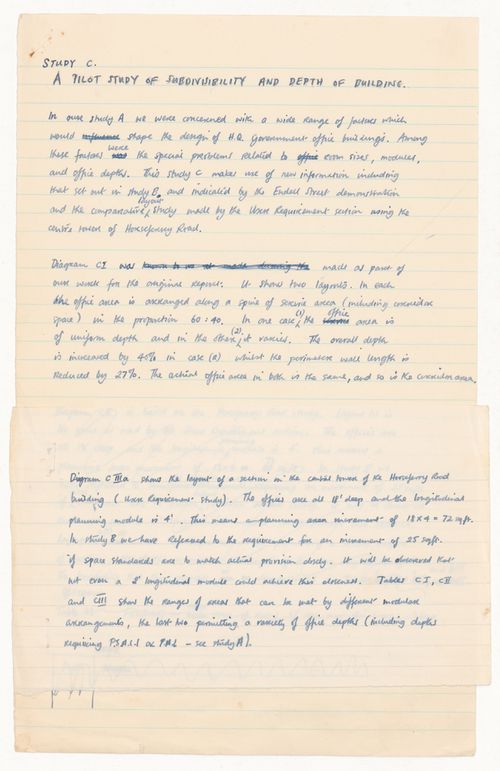 STUDY C.
A PILOT STUDY OF SUBDIVISIBILITY AND DEPTH OF BUILDING.
In our study A we were concerned with a wide range of factors which
would influence shape the design of H.Q. Government office buildings. Among
these factors were the special problems related to office room sizes, modules,
and office depths. This study C makes use of new information including
that set out in study B, and indicated by the Endell Street demonstration
and the comparative layout study made by the User Requirement section using the
centre tower of Horseferry Road.
Diagram CI was made as part of
our work for the original report. It shows two layouts. In each
the office area is arranged along a spine of service area (including corridor
space) in the proportion 60:40. In one case (1) the office area is
of uniform depth and in the other (2) it varies. The overall depth
is increased by 40% in case (2) whilst the perimeter wall length is
reduced by 27%. The actual office area in both is the same, and so is the corridor area.
Diagram CIIIa shows the layout of a section in the central tower of the Horseferry Road
building (User Requirement Study). The offices are all 18' deep and the longitudinal
planning module is 4'. This means a planning area increment of 18 x 4 = 72 sq.ft.
In study B we have referred to the requirement for an increment of 25 sq.ft.
if space standards are to match actual provision closely. It will be observed that
not even a 2' longitudinal module could achieve this closeness. Tables CI, CII
and CIII show the ranges of areas that can be met by different modular
arrangements, the last two permitting a variety of office depths (including depths
requiring P.S.A.L.I or P.A.L - see study A).